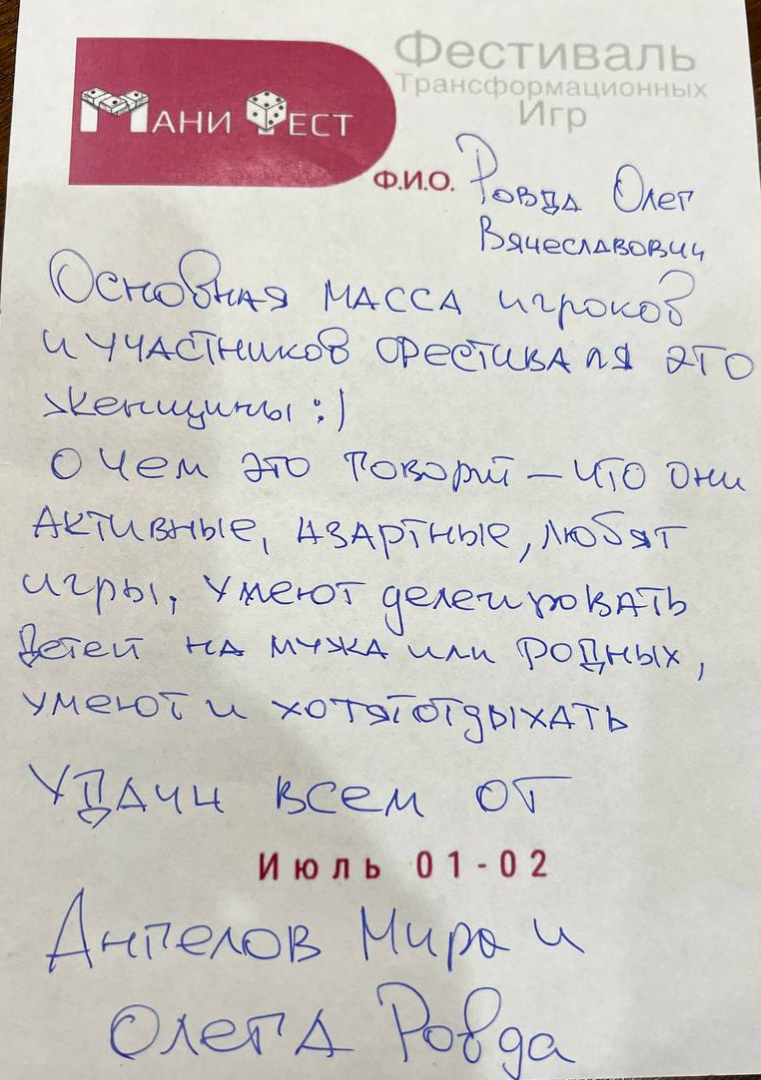 Фестиваль
Трансформационных
Игр
МАНИ ФЕСТ
Ф.И.О. Ровда Олег
Вячеславович
Основная масса игроков
и участников фестиваля это
женщины :)
О чем это говорит – что они
активные, азартные, любят
игры, умеют делегировать
детей на мужа или родных,
умеют и хотят отдыхать
Удачи всем от
Июль 01-02
Ангелов Мира и
Олега Ровда